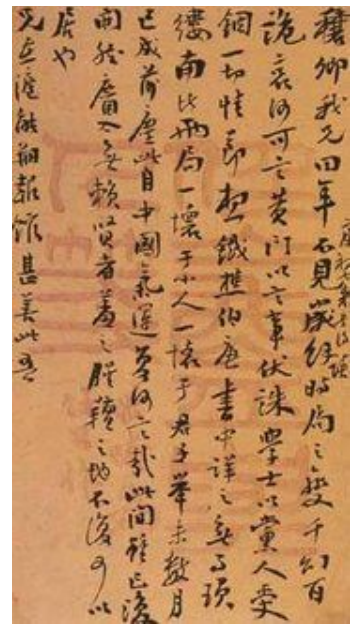 穰卿我兄四年不見歲經時局之變千幻百
詭哀何可言黃門以言事伏誅學士以黨人受
錮一切情節想鐵樵伯唐書中詳之無事瑣
縷南北兩局一壞于小人一壞于君子舉未數月
已成前塵此自中國氣運夐何言哉此間雖已復
開然麏入無賴賢者羞之腥羶之地不復可以
居也
兄在滬能翻報館甚善此吾